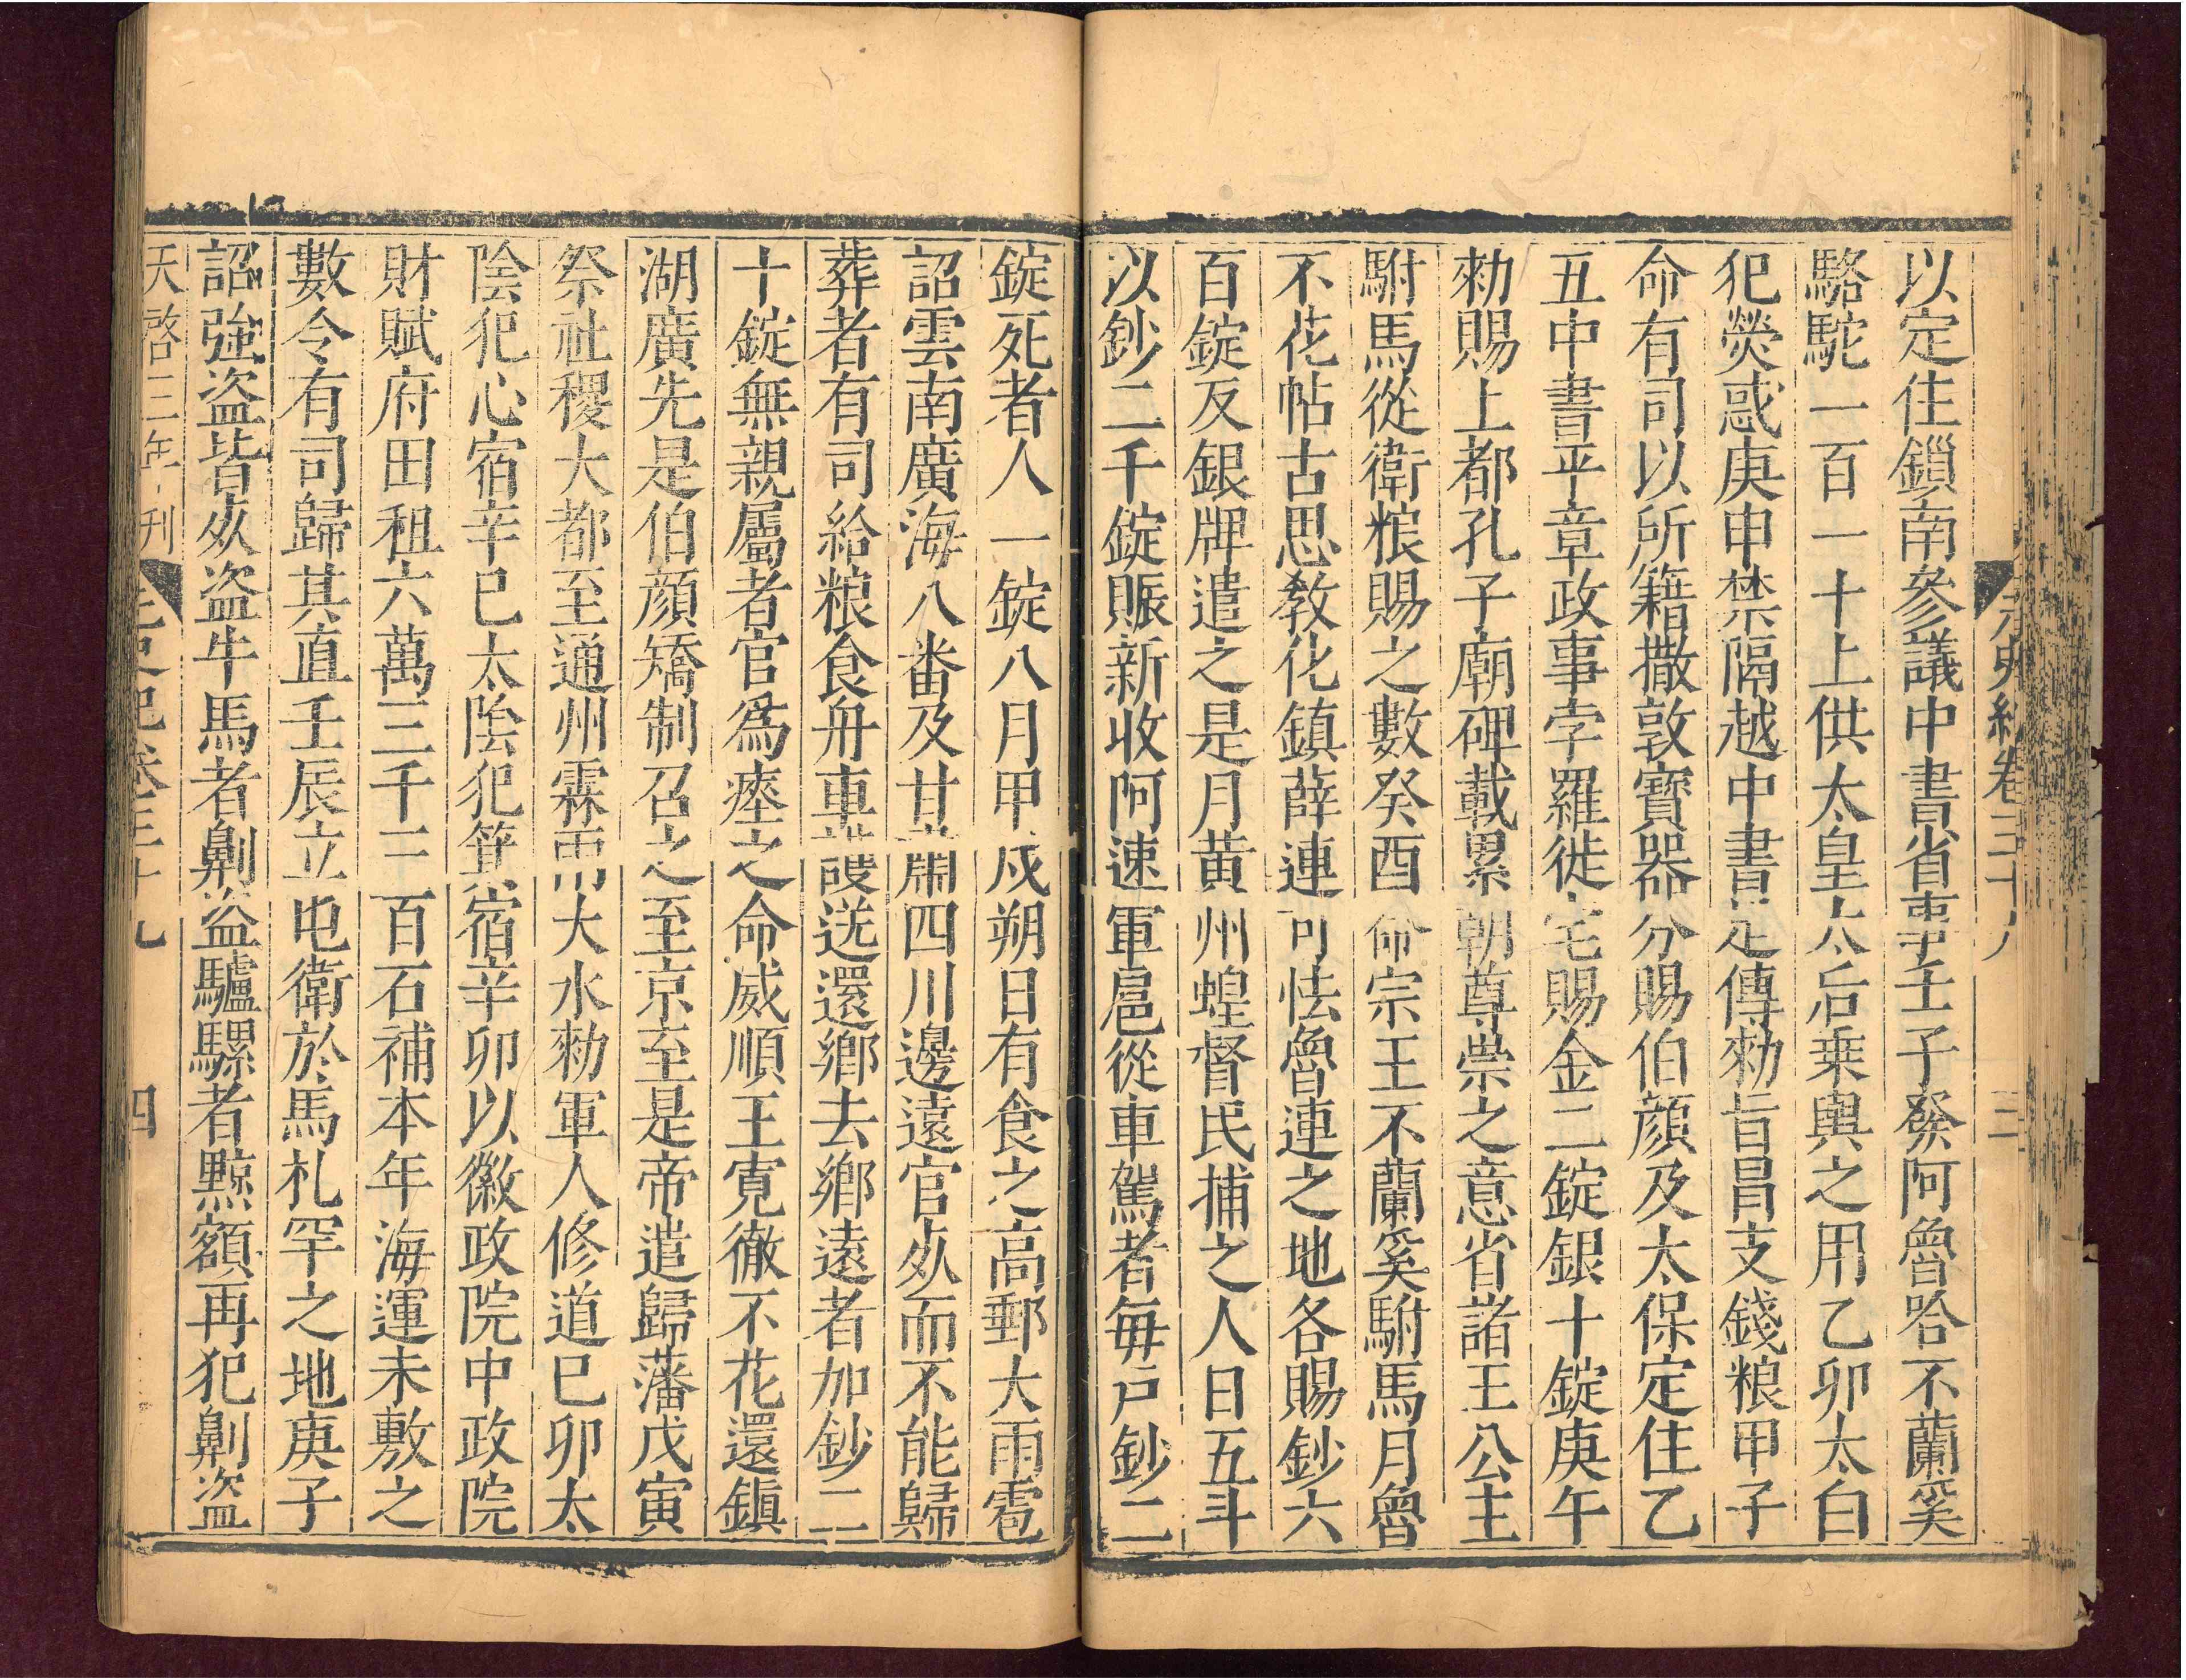 元史紀卷三十九 三
以定住鎖南參議中書省事壬子癸阿魯哈不蘭奚
駱駝一百一十上供太皇太后乘輿之用乙卯太白
犯熒惑庚申禁隔越中書口傳勑旨冒支錢粮甲子
命有司以所籍撒敦寶器分賜伯顏及太保定住乙
丑中書平章政事孛羅徙宅賜金二錠銀十錠庚午
勑賜上都孔子廟碑載累朝尊崇之意省諸王公主
駙馬從衛粮賜之數癸酉命宗王不蘭奚駙馬月魯
不花帖古思敎化鎮薛連可怯魯連之地各賜鈔六
百錠及銀牌遣之是月黃州蝗督民捕之人日五斗
以鈔二千錠賑新收阿速軍扈從車駕者每戸鈔二
錠死者人一錠八月甲戌朔日有食之高郵大雨雹
詔雲南廣海八番及甘肅四川邊遠官死而不能歸
葬者有司給粮食舟車護送還鄉去鄉遠者加鈔二
十錠無親屬者官爲瘞之命威順王寛徹不花還鎮
湖廣先是伯顏矯制召之至京至是帝遣歸藩戊寅
祭社稷大都至通州霖雨大水勑軍人修道巳卯太
陰犯心宿辛巳太陰犯箕宿辛卯以徽政院中政院
財賦府田租六萬三千三百石補本年海運未敷之
數令有司歸其直壬辰立屯衛於馬札罕之地庚子
詔強盜皆死盜牛馬者劓盜驢騾者黥額再犯劓盜
天啓三年刊 元史紀卷三十九 四